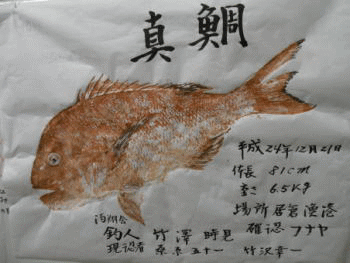 真鯛
平成24年12月21日
体長 81cm
重さ 6.5Kg
場所 居倉漁港
確認 フナヤ
釣人 竹澤 時晃
現認者 桑原五十一 竹沢幸一